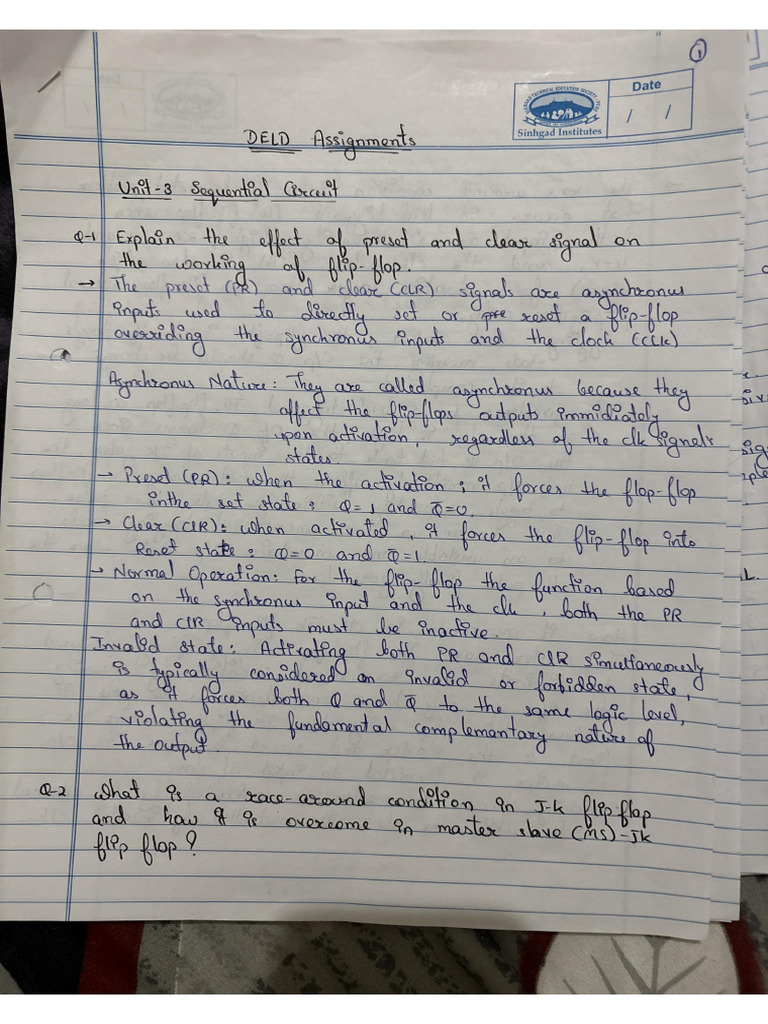 1
Date
/ /
Sinhgad Institutes
DELD Assignments
Unit-3 Sequential Circuit
Q-1 Explain the effect of preset and clear signal on
the working of flip-flop.
→ The preset (PR) and clear (CLR) signals are asynchronus
inputs used to directly set or pre reset a flip-flop
overriding the synchronus inputs and the clock (CLK)
Asynchronus Nature: They are called asynchronus because they
affect the flip-flops outputs immidiately
upon activation, regardless of the clk signal's
states.
→ Preset (PR): when the activation ; it forces the flop-flop
inthe set state : Q=1 and Q̅=0.
→ Clear (CLR): when activated, it forces the flip-flop into
Reset state : Q=0 and Q̅=1.
→ Normal Operation: For the flip-flop the function based
on the synchronus input and the clk, both the PR
and CLR inputs must be inactive.
Invalid state: Activating both PR and CLR simultaneously
is typically considered an invalid or forbidden state,
as it forces both Q and Q̅ to the same logic level,
violating the fundamental complemantary nature of
the output.
Q-2 what is a race-around condition in J-k flip-flop
and how it is overcome in master slave (MS)-Jk
flip flop?